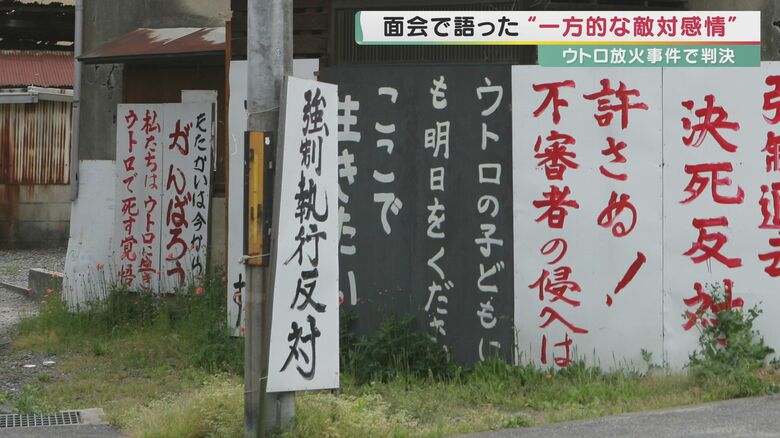 面会で語った“一方的な敵対感情”
ウトロ放火事件で判決
強制退去
決死反対
許さぬ!
不審者の侵入は
ウトロの子どもに
も明日をくださ
ここで
生きたい
強制執行反対
そたかいは今から
がんばろう
私たちはウトロに生き
ウトロで死す覚悟